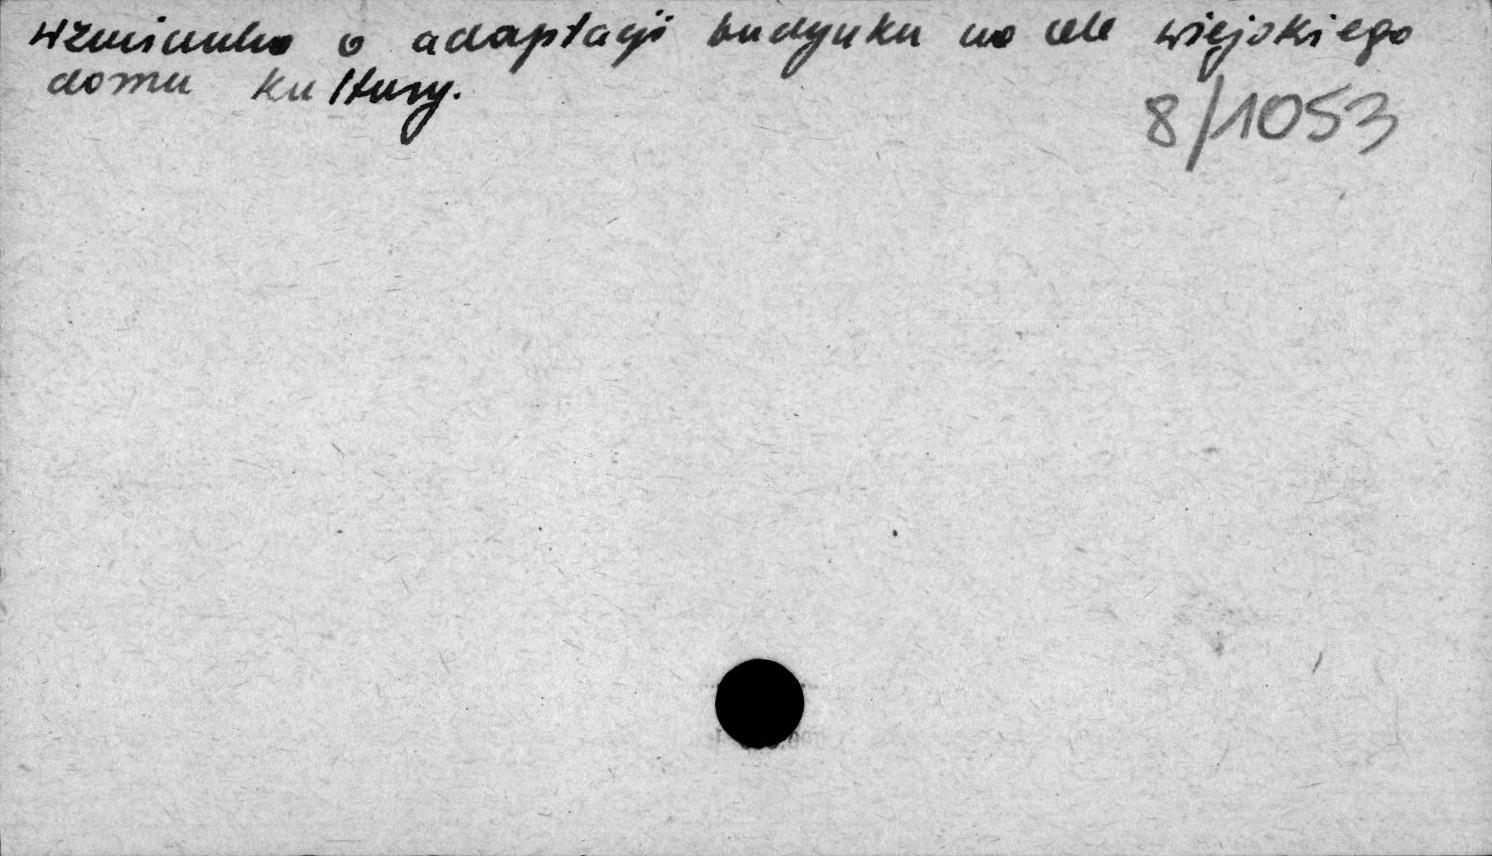 Wzmianka o adaptacji budynku na cele wiejskiego
domu kultury.
8/1053